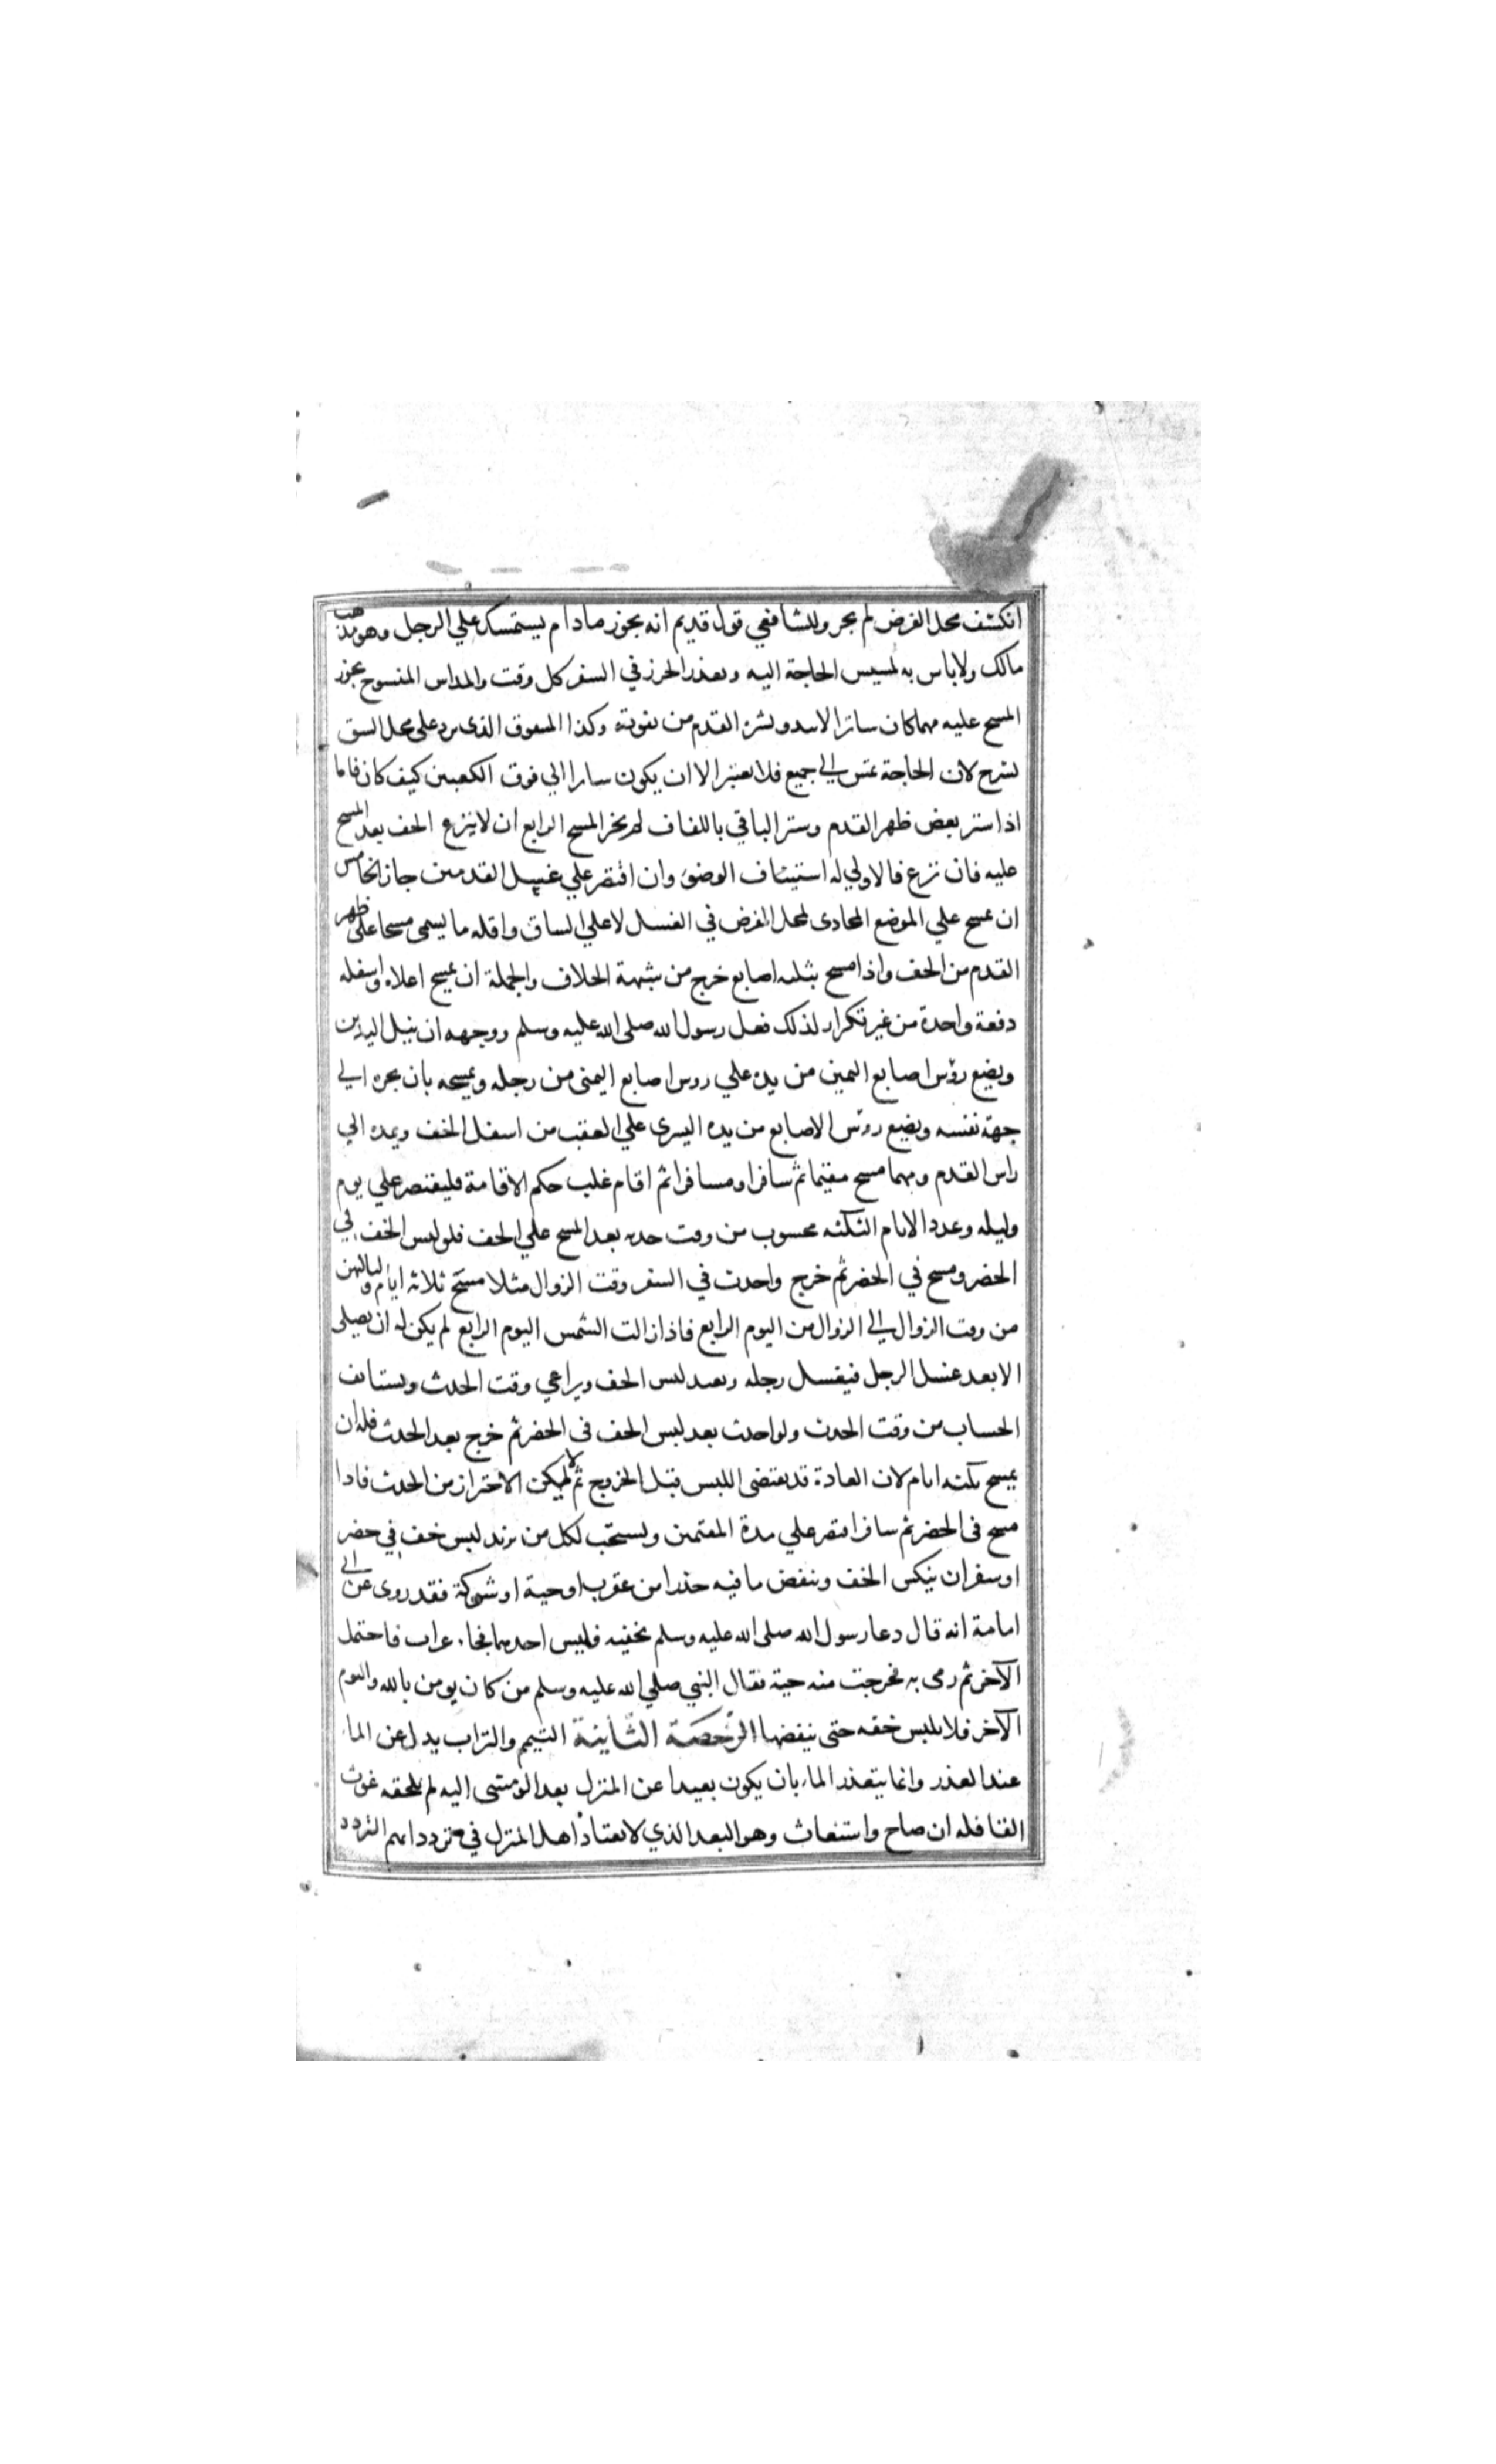 انكشف محل الفرض لم يجز وللشافعي قول قديم انه يجوز مادام يستمسك علي الرجل وهو مذهب
مالك ولاباس به لمسيس الحاجة اليه وتعذر الخرز في السفر كل وقت والمداس المنسوج يجوز
المسح عليه مهما كان ساترا لاتبدو بشرة القدم من وكذا المشقوق الذي يرد علي محل الشق
بشرج لان الحاجة تمس الي جميع فلا يعتبر الا ان يكون ساترا الي فوق الكعبين كيف كان فاما
اذا ستر بعض ظهر القدم وستر الباقي باللفاف لم يجز المسح الرابع ان لاينزع الخف بعد المسح
عليه فان نزع فالاولي له استيناف الوضوء وان اقتصر علي غسل القدمين جاز الخامس
ان يمسح علي الموضع المحاذي لمحل الفرض في الغسل لاعلي الساق واقله ما يسمي مسحا علي ظهر
القدم من الخف واذا مسح بثلثه اصابع خرج من شبهة الخلاف والجملة ان يمسح اعلاه واسفله
دفعة واحدة من غير تكرار لذلك فعل رسول الله صلي الله عليه وسلم ووجهه ان يبل اليدين
ويضع رؤس اصابع اليمين من يده علي روس اصابع اليمنى من رجله ويمسحه بان يجره الي
جهة نفسه ويضع روٓس الاصابع من يده اليسري علي العقب من اسفل الخف ويمده الي
راس القدم ومهما مسح مقيما ثم سافر او مسافرا ثم اقام غلب حكم الاقامة فليقتصر علي يوم
وليله وعدد الايام الثلثه محسوب من وقت حدثه بعد المسح علي الخف فلو لبس الخف في
الحضر ومسح في الحضر ثم خرج واحدث في السفر وقت الزوال مثلا مسح ثلاثه ايام ولياليهن
من وقت الزوال الي الزوال من اليوم الرابع فاذا زالت الشمس اليوم الرابع لم يكن له ان يصلي
الا بعد غسل الرجل فيغسل رجله ويعيد لبس الخف ويراعي وقت الحدث ويستانف
الحساب من وقت الحدث ولو احدث بعد لبس الخف في الحضر ثم خرج بعد الحدث فله ان
يمسح ثلثه ايام لان العادة قد يقتضي اللبس قبل الخروج ثم لا يمكن الاحتراز من الحدث فاذا
مسح في الحضر ثم سافر اقتصر علي مدة المقيمين ويستحب لكل من يريد لبس خف في حضر
او سفر ان ينكس الخف وينفض ما فيه حذرا من عقرب او حية او شوكة فقد روي عن ابي
امامة انه قال دعا رسول الله صلي الله عليه وسلم بخفيه فلبس احديهما فجاء غراب فاحتمل
الآخر ثم رمي به فخرجت منه حية فقال النبي صلي الله عليه وسلم من كان يومن بالله واليوم
الآخر فلا يلبس خفه حتي ينفضها الرخصة الثانية التيمم والتراب بدل عن الماء
عند العذر وانما يتعذر الماء بان يكون بعيدا عن المنزل بعدا لو مشي اليه لم يلحقه غوث
القافله ان صاح واستغاث وهو البعد الذي لايعتاد اهل المنزل في ترددا هم التردد